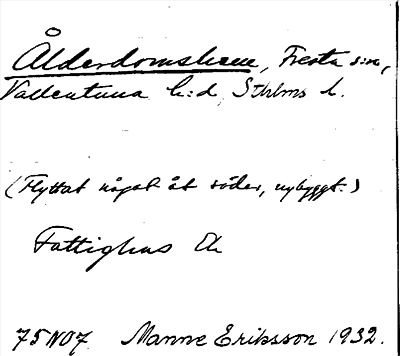 Ålderdomshem, Fresta s:n,
Vallentuna h:d, Sthlms l.
(Flyttat något åt söder, nybyggt.)
Fattighus Ek
75 NO7 Manne Eriksson 1932.